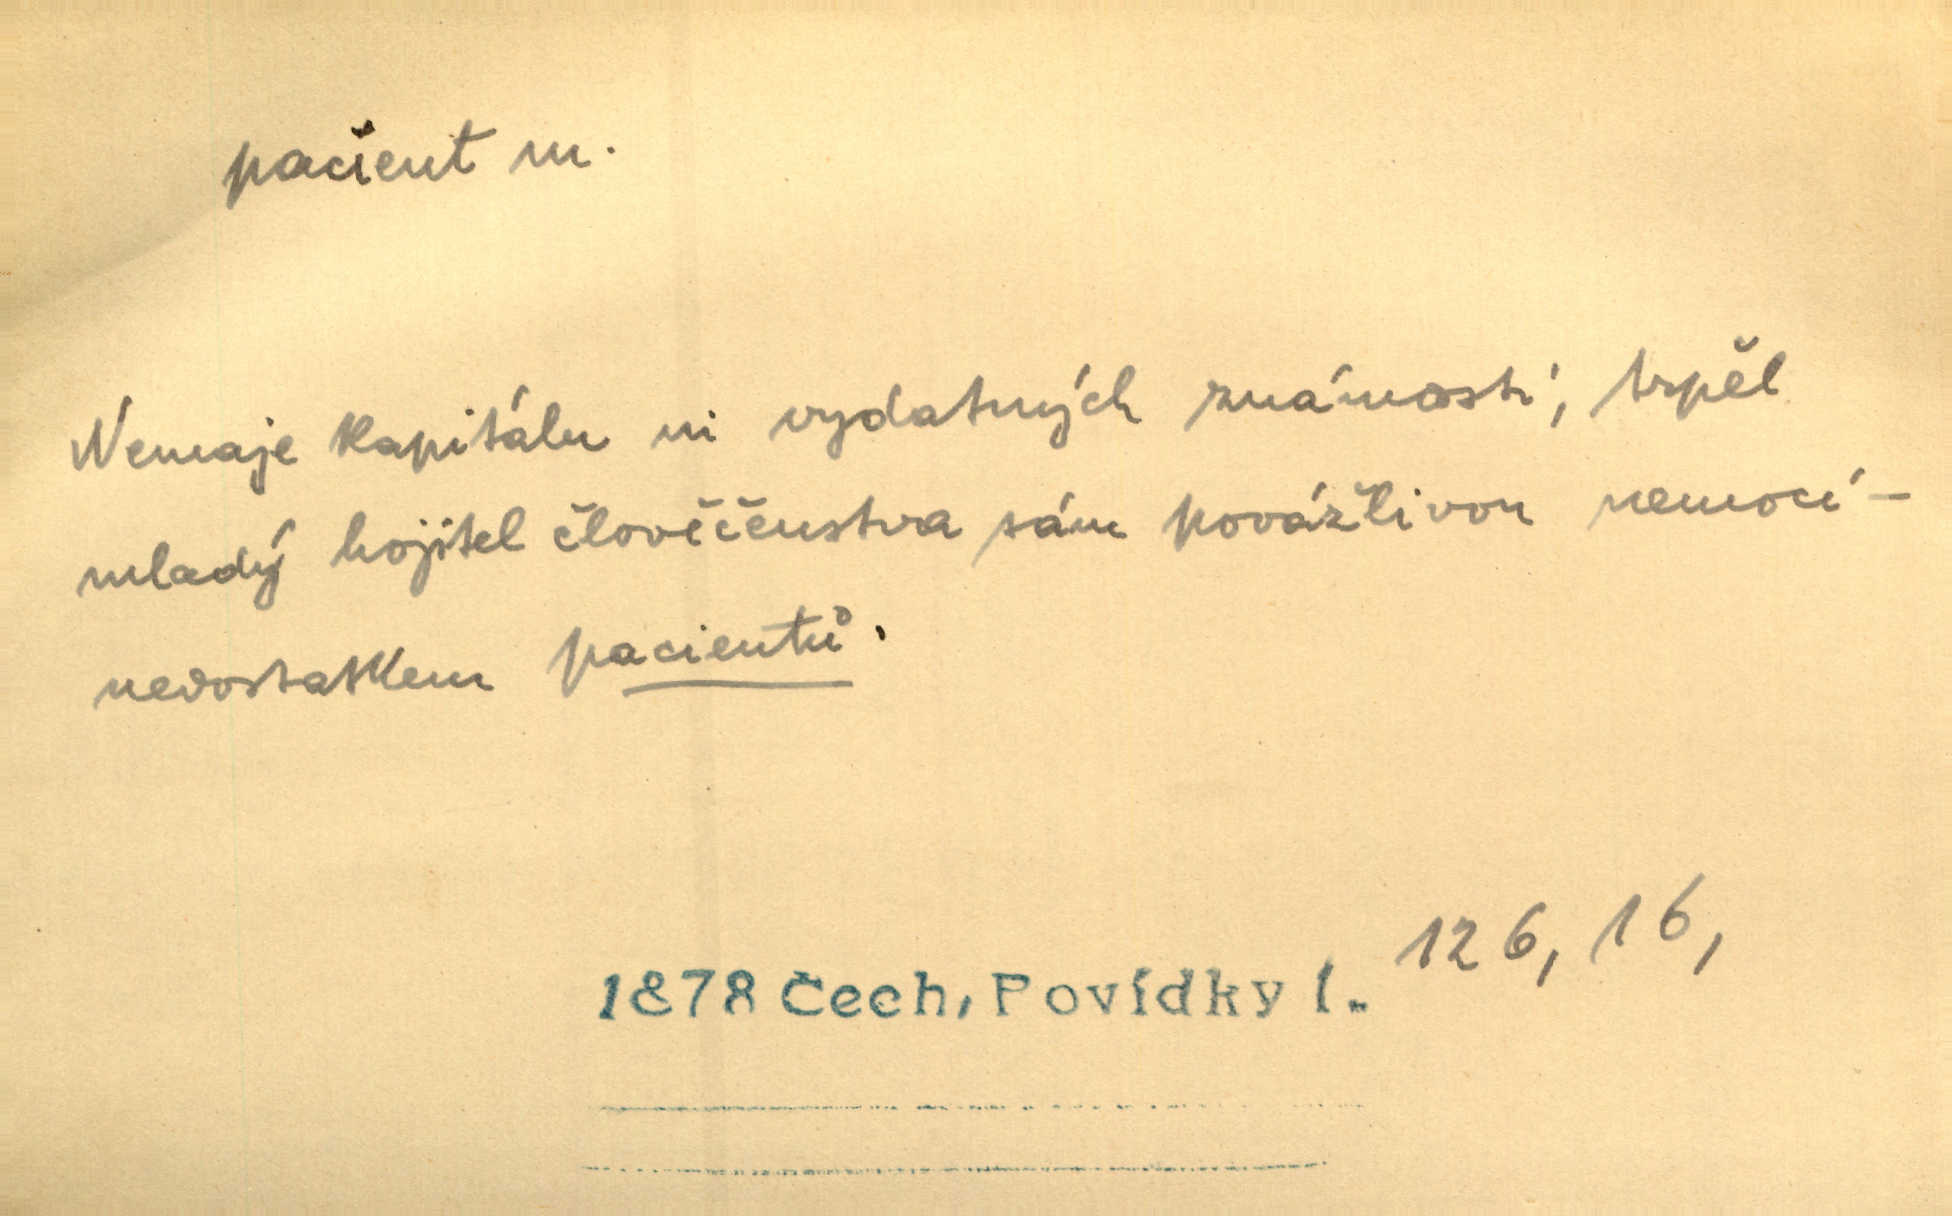 pacient m.
Nemaje kapitálu ni vydatných známostí, trpěl
mladý hojitel člověčenstva sám povážlivou nemocí –
nedostatkem pacientů.
126, 16,
1878 Čech, Povídky I.